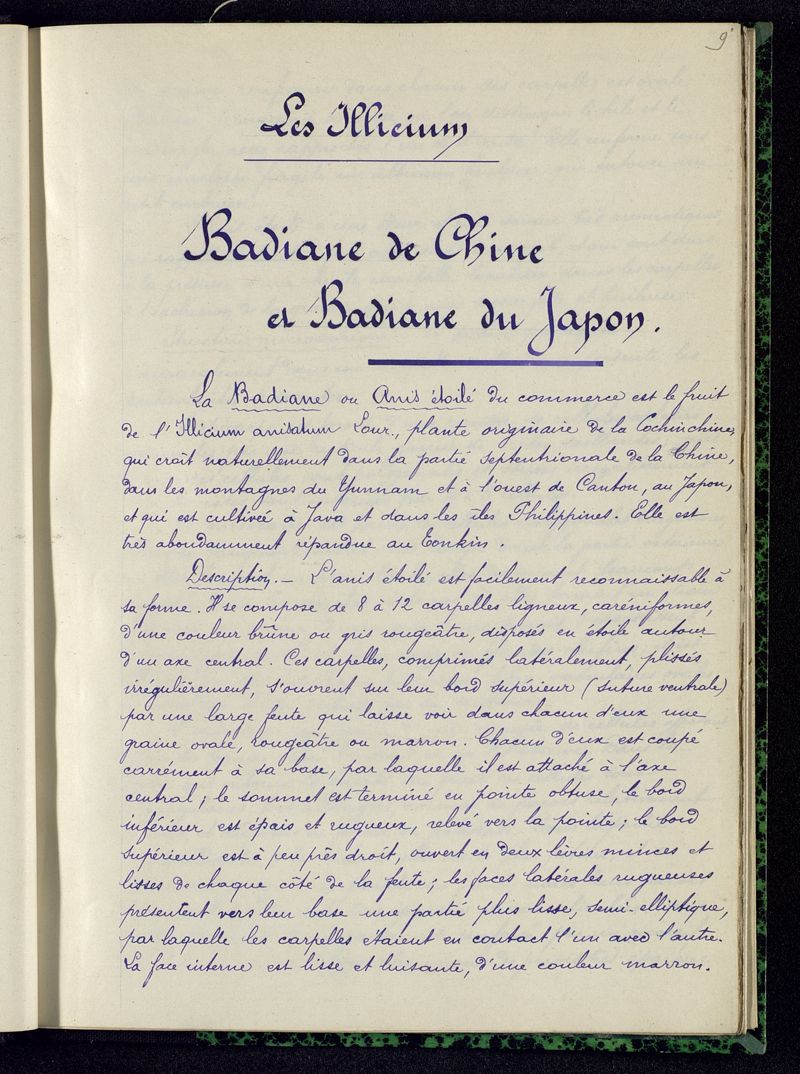 9
Les Illicium
Badiane de Chine
et Badiane du Japon.
La Badiane ou Anis étoilé du commerce est le fruit
de l'Illicium anisatum Lour., plante originaire de la Cochinchine,
qui croît naturellement dans la partie septentrionale de la Chine,
dans les montagnes du Yunnam et à l'ouest de Canton, au Japon,
et qui est cultivée à Java et dans les îles Philippines. Elle est
très abondamment répandue au Tonkin.
Description. – L'anis étoilé est facilement reconnaissable à
sa forme. Il se compose de 8 à 12 carpelles ligneux, caréniformes,
d'une couleur brûne ou gris rougeâtre, disposés en étoile autour
d'un axe central. Ces carpelles, comprimés latéralement, plissés
irrégulièrement, s'ouvrent sur leur bord supérieur (suture ventrale)
par une large fente qui laisse voir dans chacun d'eux une
graine ovale, rougeâtre ou marron. Chacun d'eux est coupé
carrément à sa base, par laquelle il est attaché à l'axe
central; le sommet est terminé en pointe obtuse, le bord
inférieur est épais et rugueux, relevé vers la pointe; le bord
supérieur est à peu près droit, ouvert en deux lèvres minces et
lisses de chaque côté de la fente; les faces latérales rugueuses
présentent vers leur base une partie plus lisse, semi-elliptique,
par laquelle les carpelles étaient en contact l'un avec l'autre.
La face interne est lisse et luisante, d'une couleur marron.